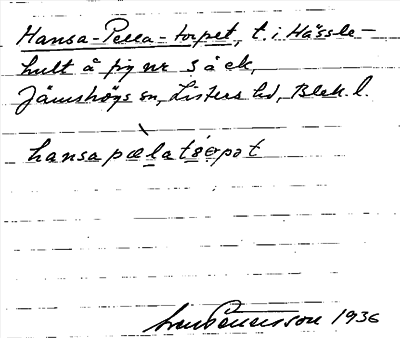 Hansa-Pella-torpet, t. i Hässle-
hult å fig nr 3 å ek,
Jämshögs sn, Listers hd, Blek. l.
hansapælatɵrpət
Sven Benson 1936